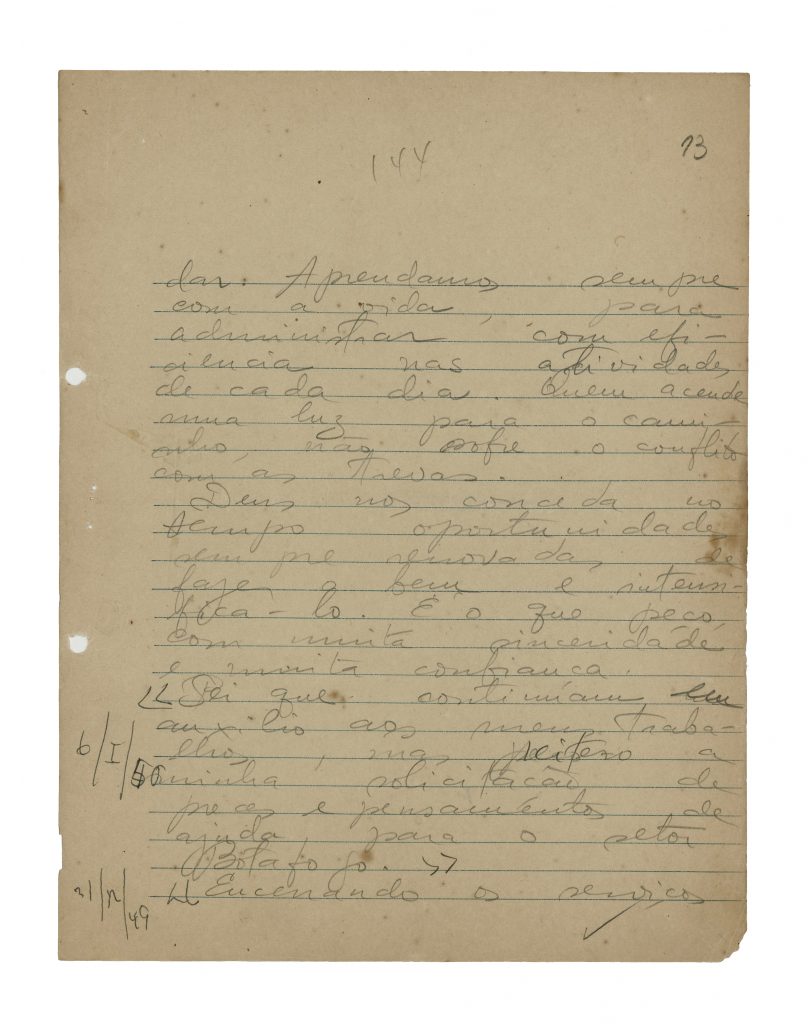 144
13
dar. Aprendamos sempre
com a vida, para
administrar com efi-
ciencia nas atividades
de cada dia. Quem acende
uma luz para o cami-
nho, não sofre o conflito
com as trevas.
Deus nos conceda no
tempo oportunidades
sempre renovadas de
fazer o bem e intensi-
fica-lo. É o que peço,
com muita sinceridade
e muita confiança.
"Sei que continuam em
auxilio aos meus traba-
lhos, mas reitero a
6/I/50
minha solicitação de
preces e pensamentos de
ajuda, para o setor
Botafogo."
31/12/49
"Encerrando os serviços